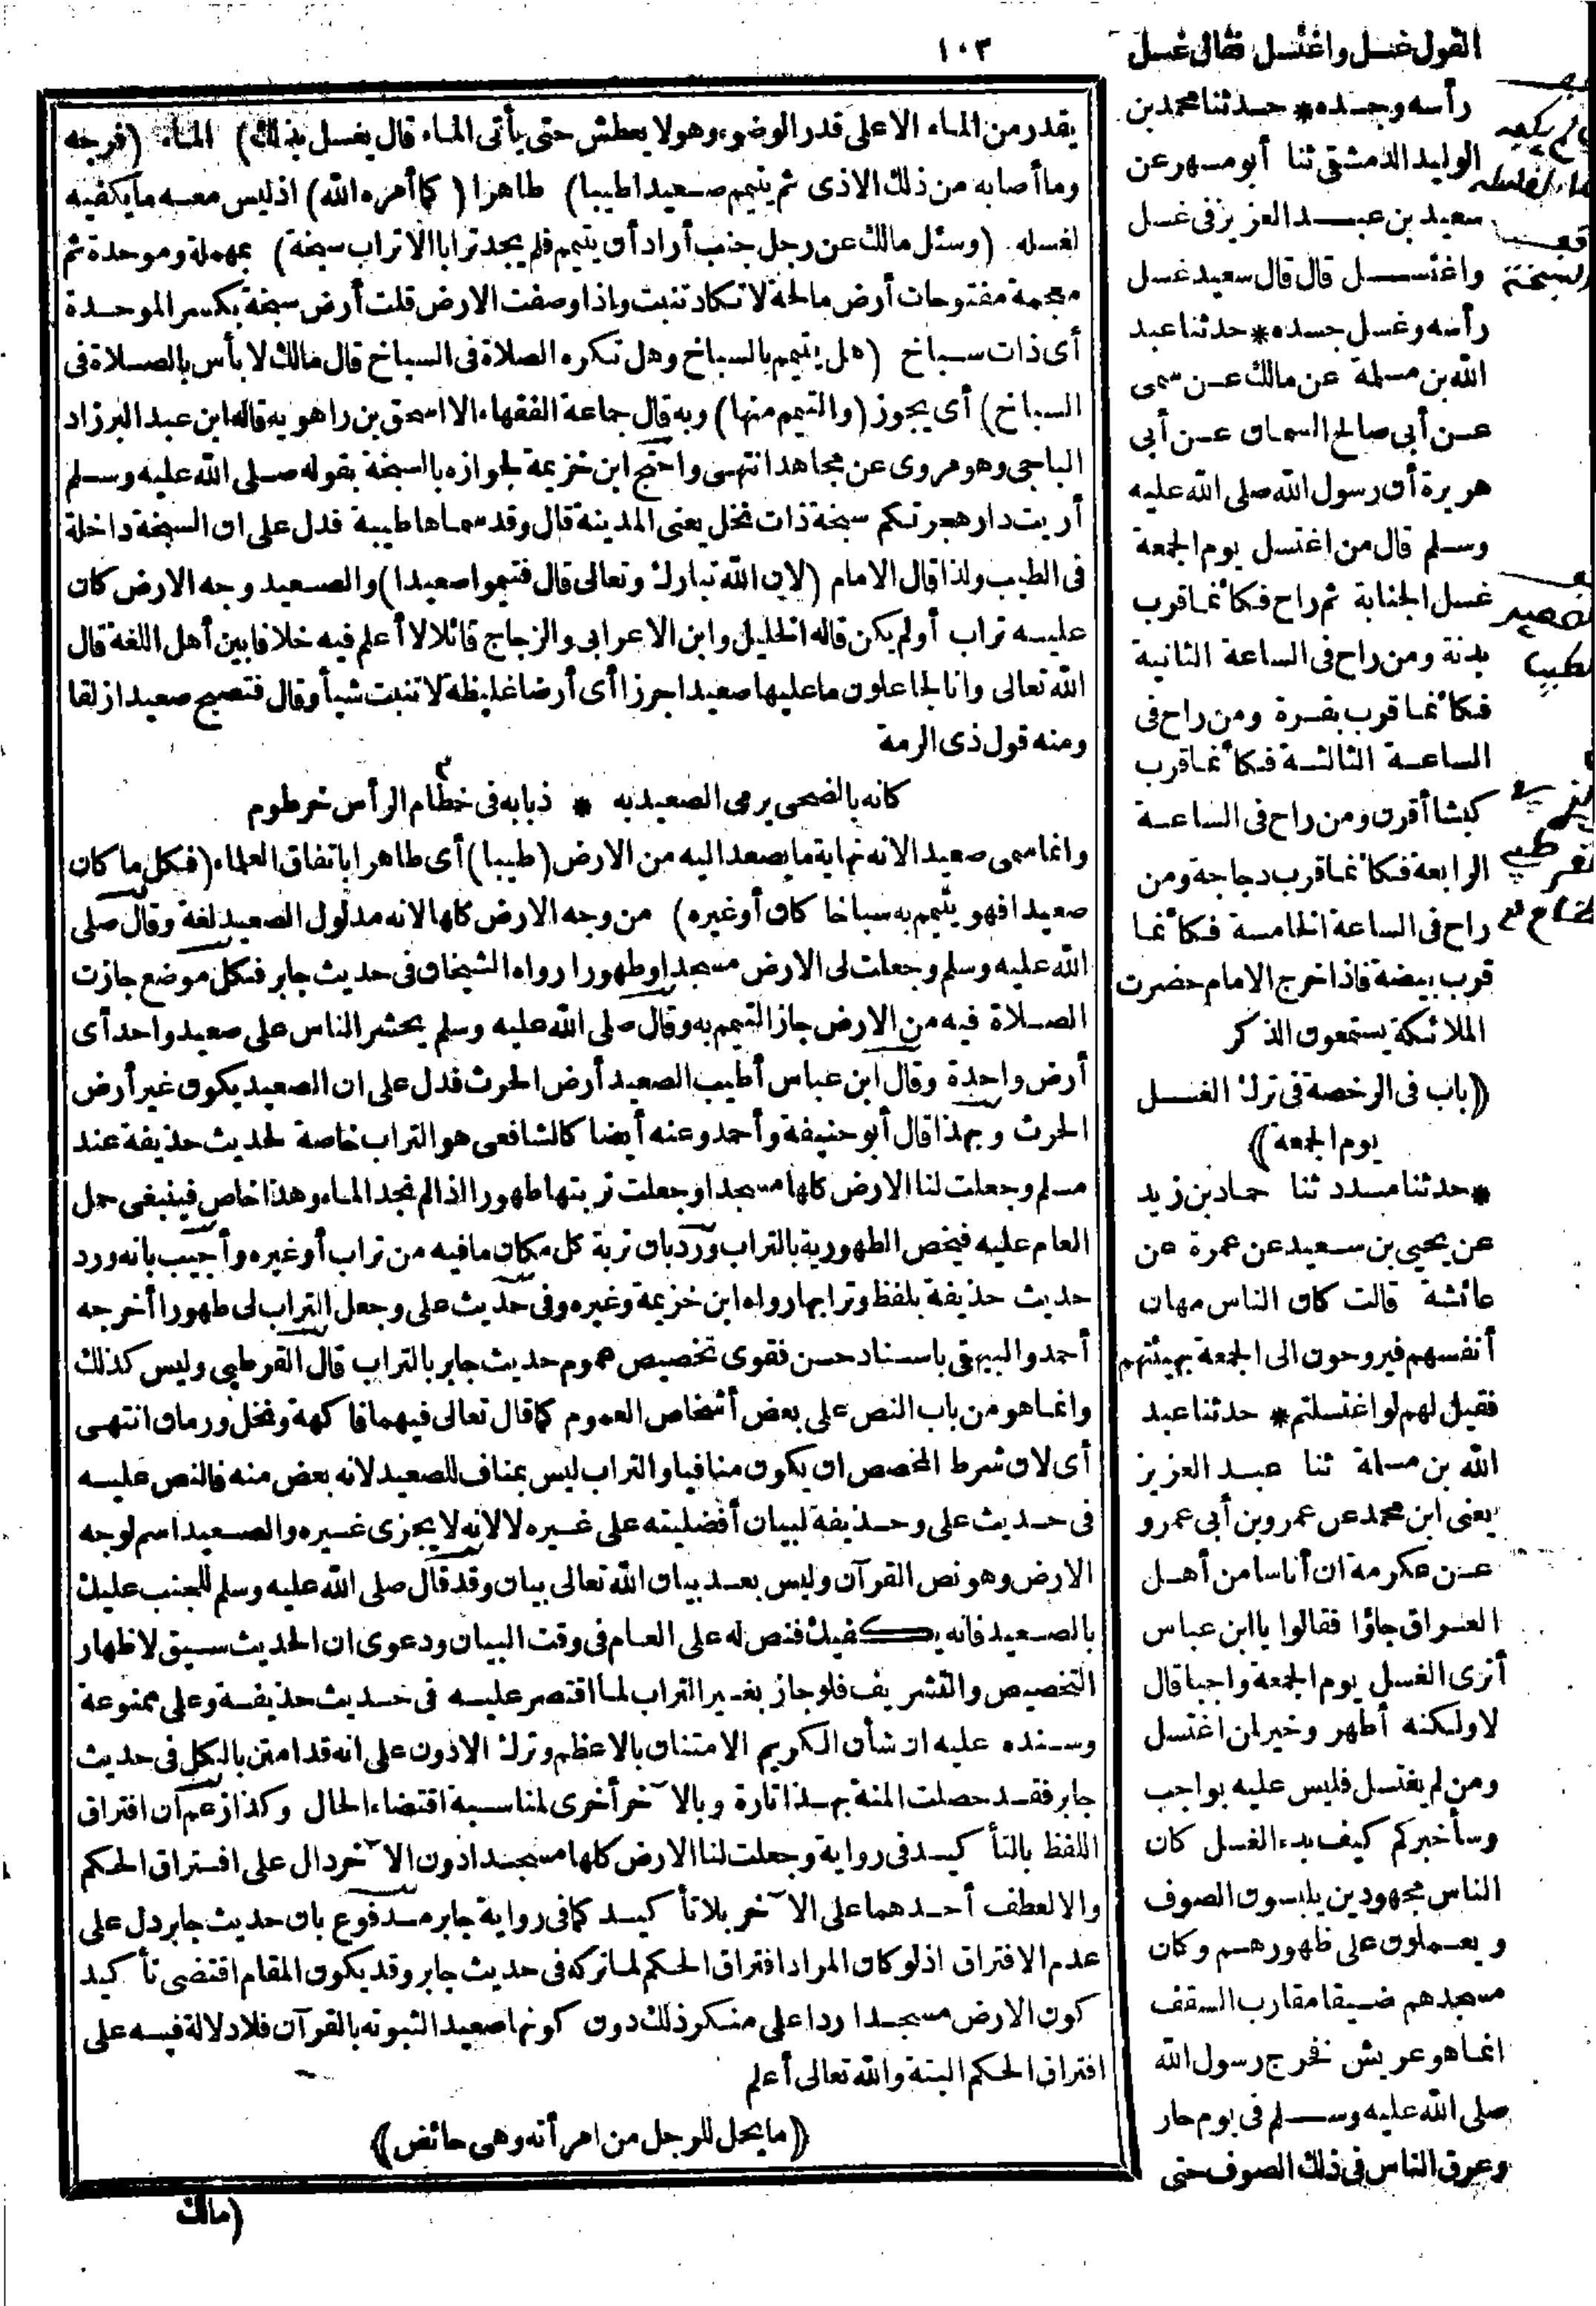 ١٠٣
القول غسل واغتسل فقال غسل
رأسه وجسده * حدثنا محمد بن
الوليد الدمشقى ثنا أبو مسهر عن
سعيد بن عبد العزيز فى غسل
واغتسل قال قال سعيد غسل
رأسه وغسل جسده * حدثنا عبد
الله بن مسلمة عن مالك عن سمى
عن أبى صالح السمان عن أبى
هريرة أن رسول الله صلى الله عليه
وسلم قال من اغتسل يوم الجمعة
غسل الجنابة ثم راح فكأنما قرب
بدنة ومن راح فى الساعة الثانية
فكأنما قرب بقرة ومن راح فى
الساعة الثالثة فكأنما قرب
كبشا أقرن ومن راح فى الساعة
الرابعة فكأنما قرب دجاجة ومن
راح فى الساعة الخامسة فكأنما
قرب بيضة فاذا خرج الامام حضرت
الملائكة يستمعون الذكر
((باب فى الرخصة فى ترك الغسل
يوم الجمعة))
* حدثنا مسدد ثنا حماد بن زيد
عن يحيى بن سعيد عن عمرة عن
عائشة قالت كان الناس مهان
أنفسهم فيروحون الى الجمعة بهيئتهم
فقيل لهم لو اغتسلتم * حدثنا عبد
الله بن مسلمة ثنا عبد العزيز
يعنى ابن محمد عن عمرو بن أبى عمرو
عن عكرمة ان أناسا من أهل
العراق جاؤا فقالوا يا ابن عباس
أترى الغسل يوم الجمعة واجبا قال
لا ولكنه أطهر وخير لمن اغتسل
ومن لم يغتسل فليس عليه بواجب
وسأخبركم كيف بدء الغسل كان
الناس مجهودين يلبسون الصوف
ويعملون على ظهورهم وكان
مسجدهم ضيقا مقارب السقف
انما هو عريش فخرج رسول الله
صلى الله عليه وسلم فى يوم حار
وعرق الناس فى ذلك الصوف حتى
يقدر من الماء الا على قدر الوضوء وهو لا يعطش حتى يأتى الماء قال يغسل بذلك) الماء (فرجه
وما أصابه من ذلك الاذى ثم يتيمم صعيدا طيبا) طاهرا (كما أمره الله) اذ ليس معه ما يكفيه
لغسله (وسئل مالك عن رجل جنب أراد أن يتيمم فلم يجد ترابا الا تراب سبخة) بمهملة وموحدة ثم
معجمة مفتوحات أرض مالحة لا تكاد تنبت واذا وصفت الارض قلت أرض سبخة بكسر الموحدة
أى ذات سباخ (هل يتيمم بالسباخ وهل تكره الصلاة فى السباخ قال مالك لا بأس بالصلاة فى
السباخ) أى يجوز (والتيمم منها) وبه قال جماعة الفقهاء الا اسحق بن راهويه قاله ابن عبد البر زاد
الباجى وهو مروى عن مجاهد انتهى واحتج ابن خزيمة لجوازه بالسبخة بقوله صلى الله عليه وسلم
أريت دار هجرتكم سبخة ذات نخل يعنى المدينة قال وقد سماها طيبة فدل على ان السبخة داخلة
فى الطيب ولذا قال الامام (لان الله تبارك وتعالى قال فتيموا صعيدا) والصعيد وجه الارض كان
عليه تراب أو لم يكن قاله الخليل وابن الاعرابى والزجاج قائلا لا أعلم فيه خلافا بين أهل اللغة قال
الله تعالى وانا لجاعلون ما عليها صعيدا جرزا أى أرضا غليظة لا تنبت شيأ وقال فتصبح صعيدا زلقا
ومنه قول ذى الرمة
كانه بالضحى يرمى الصعيد به * ذبابه فى خطام الرأس خرطوم
وانما سمى صعيدا لانه نهاية ما يصعد اليه من الارض (طيبا) أى طاهرا باتفاق العلماء (فكل ما كان
صعيدا فهو يتيمم به سباخا كان أو غيره) من وجه الارض كلها لانه مدلول الصعيد لغة وقال صلى
الله عليه وسلم وجعلت لى الارض مسجدا وطهورا رواه الشيخان فى حديث جابر فكل موضع جازت
الصلاة فيه من الارض جاز التيمم به وقال صلى الله عليه وسلم يحشر الناس على صعيد واحد أى
أرض واحدة وقال ابن عباس أطيب الصعيد أرض الحرث فدل على ان الصعيد يكون غير أرض
الحرث وبهذا قال أبو حنيفة وأحمد وعنه أيضا كالشافعى هو التراب خاصة لحديث حذيفة عند
مسلم وجعلت لنا الارض كلها مسجدا وجعلت تربتها طهورا اذا لم نجد الماء وهذا خاص فينبغى حمل
العام عليه فيخص الطهورية بالتراب ورد بان تربة كل مكان ما فيه من تراب أو غيره وأجيب بانه ورد
حديث حذيفة بلفظ وترابها رواه ابن خزيمة وغيره وفى حديث على وجعل التراب لى طهورا أخرجه
أحمد والبيهقى باسناد حسن فقوى تخصيص عموم حديث جابر بالتراب قال القرطبى وليس كذلك
وانما هو من باب النص على بعض أشخاص العموم كما قال تعالى فيهما فاكهة ونخل ورمان انتهى
أى لان شرط المخصص ان يكون منافيا والتراب ليس بمناف للصعيد لانه بعض منه فالنص عليه
فى حديث على وحذيفة لبيان أفضليته على غيره لا لانه لا يجزى غيره والصعيد اسم لوجه
الارض وهو نص القرآن وليس بعد بيان الله تعالى بيان وقد قال صلى الله عليه وسلم للجنب عليك
بالصعيد فانه يكفيك فنص له على العام فى وقت البيان ودعوى ان الحديث سيق لاظهار
التخصيص والتشريف فلو جاز بغير التراب لما اقتصر عليه فى حديث حذيفة وعلى ممنوعة
وسنده عليه ان شأن الكريم الامتنان بالاعظم وترك الادون على انه قد امتن بالكل فى حديث
جابر فقد حصلت المنة بهذا تارة وبالآخر أخرى لمناسبة اقتضاء الحال وكذا زعم أن افتراق
اللفظ بالتأكيد فى رواية وجعلت لنا الارض كلها مسجدا دون الآخر دال على افتراق الحكم
والا لعطف أحدهما على الآخر بلا تأكيد كما فى رواية جابر مدفوع بان حديث جابر دل على
عدم الافتراق اذ لو كان المراد افتراق الحكم لما تركه فى حديث جابر وقد يكون المقام اقتضى تأكيد
كون الارض مسجدا ردا على منكر ذلك دون كونها صعيدا لثبوته بالقرآن فلا دلالة فيه على
افتراق الحكم البتة والله تعالى أعلم
((ما يحل للرجل من امرأته وهى حائض))
(مالك